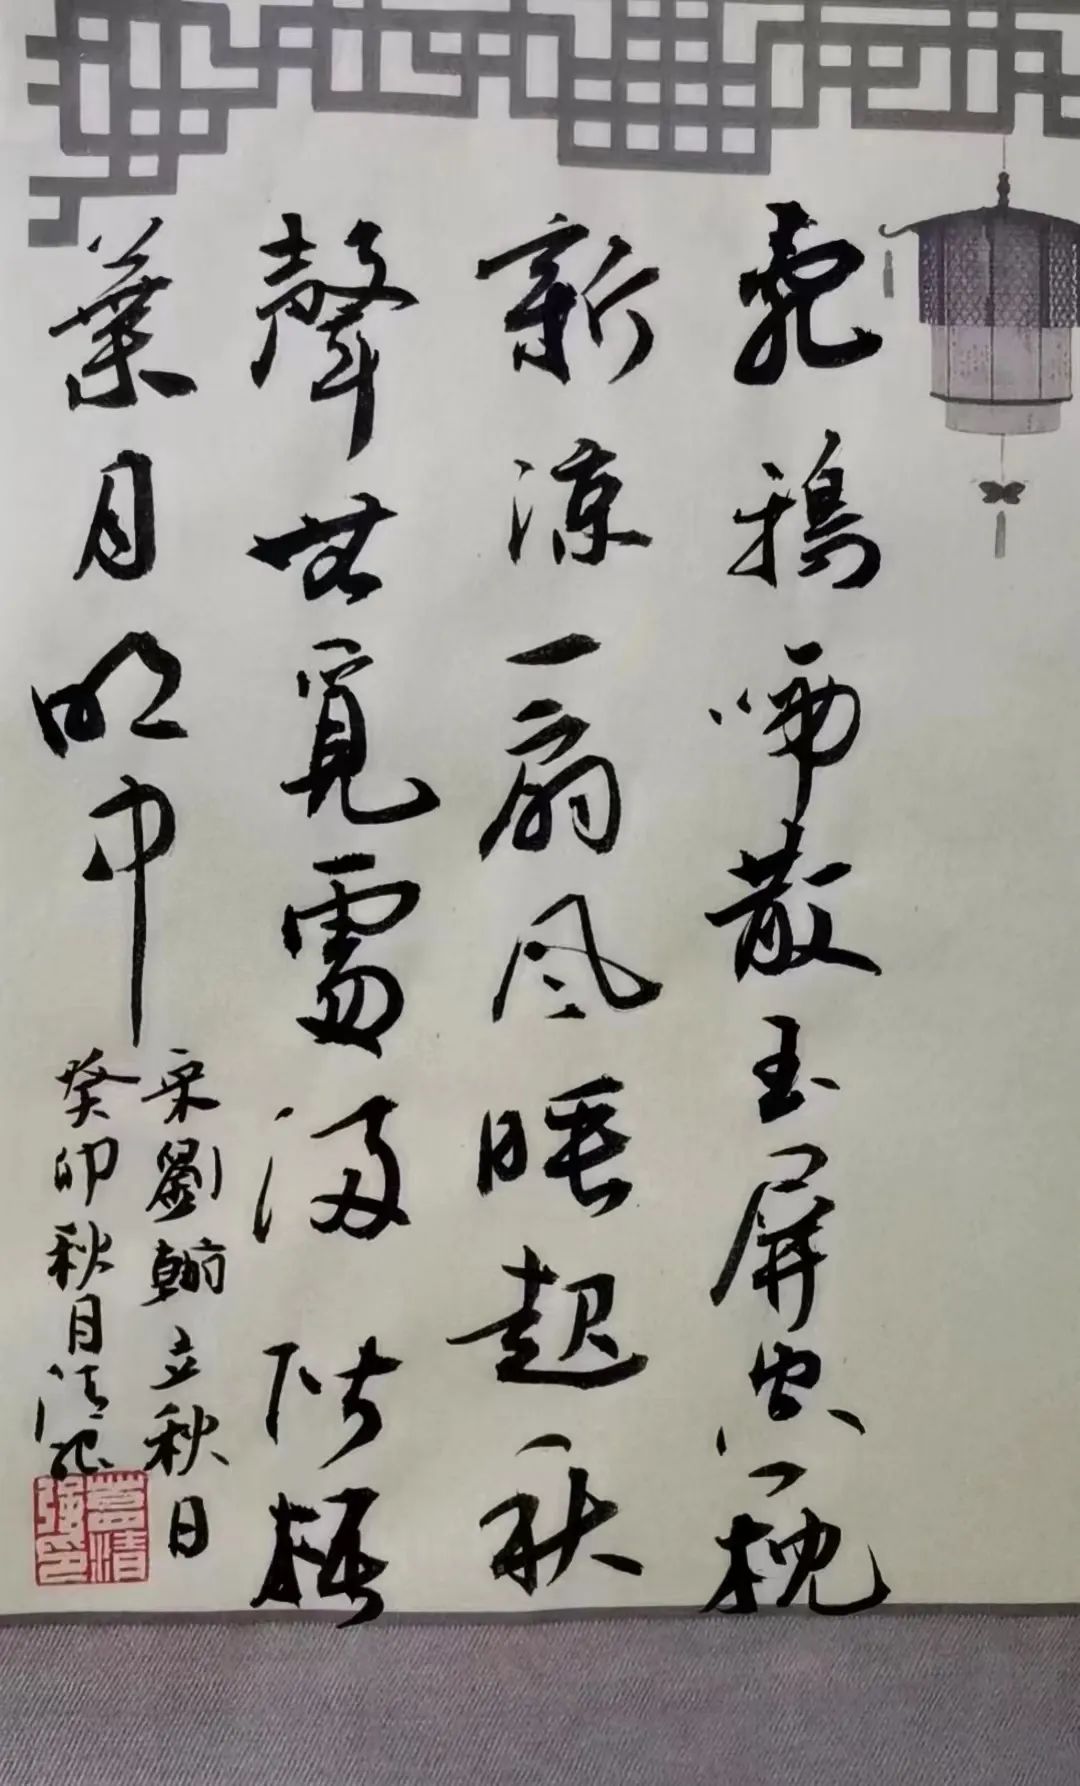 乳鴉啼散玉屏空一枕
新涼一扇风睡起秋
聲無覓處滿階梧
葉月明中
宋劉翰立秋日
癸卯秋月清